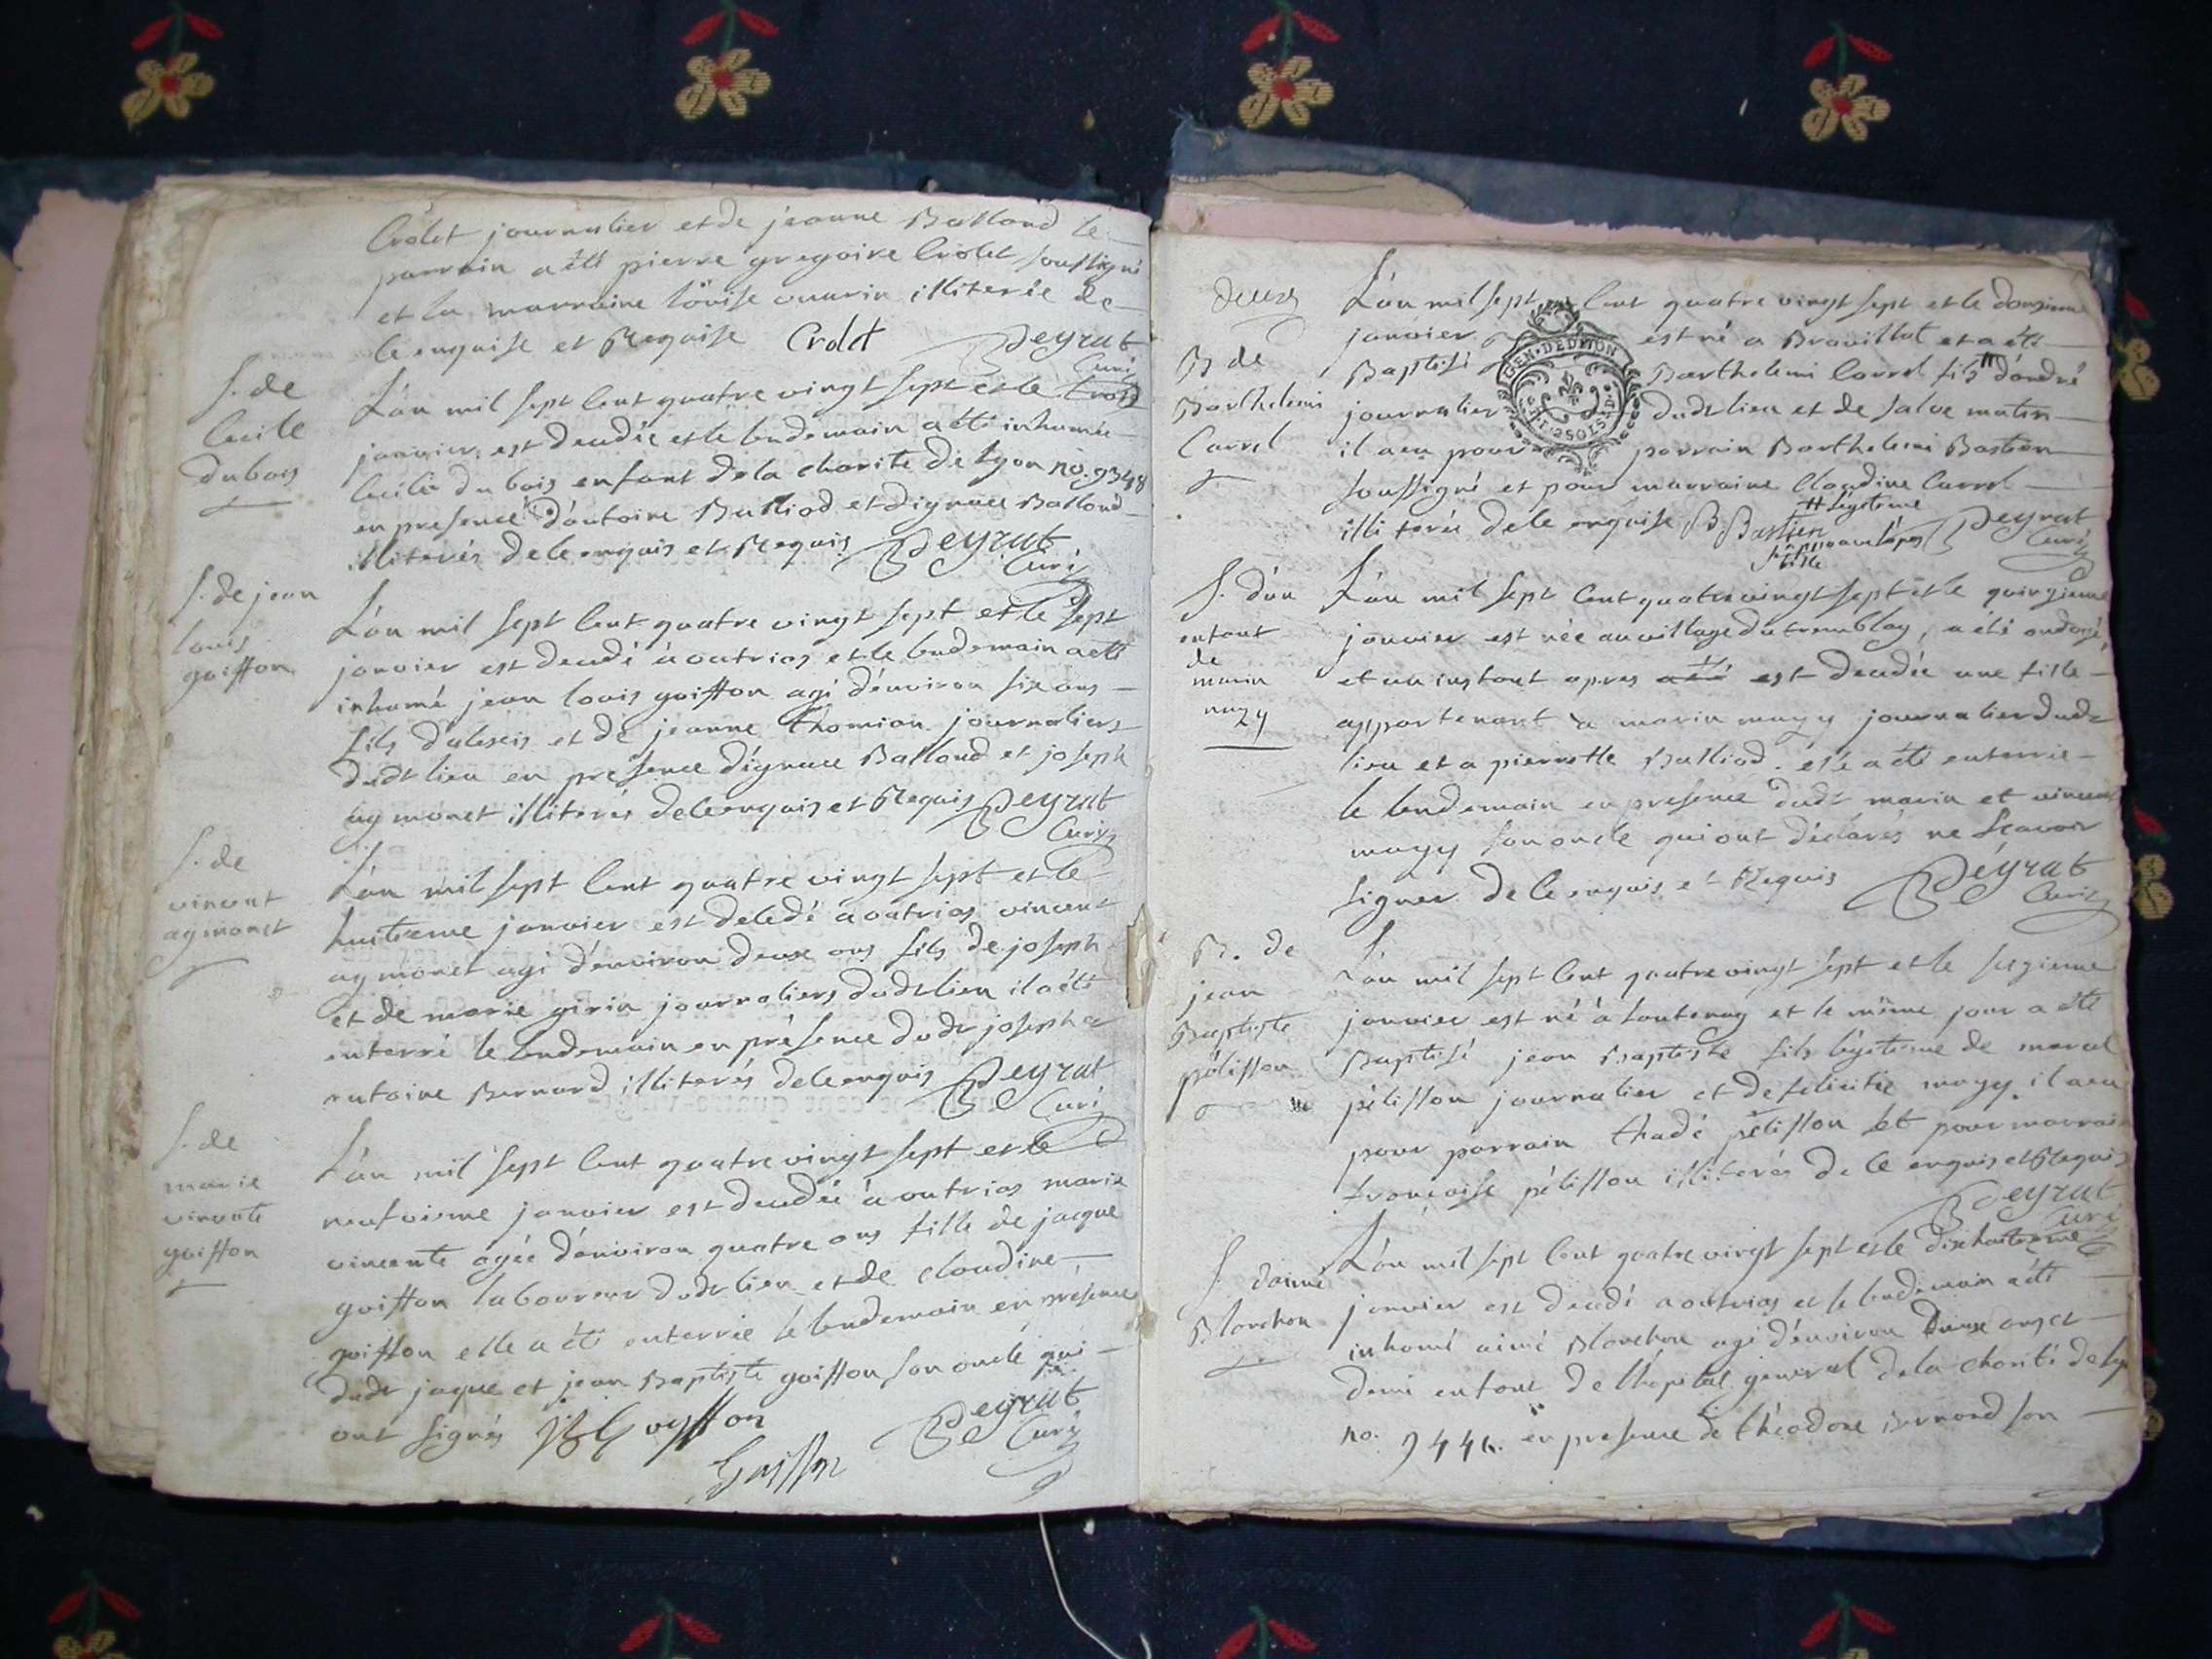 Crolet journalier et de jeanne Balland le
parrain a été pierre gregoire Crolet soussigné
et la marraine loüise illiterée de
ce enquise et Requise Crolet Peyrat
Curé
S. de
Cecile
dubois
L'an mil sept cent quatre vingt sept et le trois
janvier est decedée et le lendemain a été inhumée
Cecile du bois enfant de la charité de Lyon no. 9348
en presence d'antoine Balliod et d'ignace Balland
illiterés de ce enquis et Requis Peyrat
Curé
S. de jean
louis
goiffon
L'an mil sept cent quatre vingt sept et le sept
janvier est decedé a outrias et le lendemain a été
inhumé jean louis goiffon agé d'environ six ans
fils d'alexis et de jeanne thomian journaliers
dudt lieu en présence d'ignace Balland et joseph
aymonet illiterés de ce enquis et Requis Peyrat
Curé
S. de
vincent
aymonet
L'an mil sept cent quatre vingt sept et le
huitieme janvier est decedé a outrias vincent
aymonet agé d'environ deux ans fils de joseph
et de marie girin journaliers dudt lieu il a été
enterré le lendemain en présence dudt joseph et
antoine Bernard illiterés de ce enquis Peyrat
Curé
S. de
marie
vincente
goiffon
L'an mil sept cent quatre vingt sept et le
neufvieme janvier est decedée a outrias marie
vincente agée d'environ quatre ans fille de jacque
goiffon laboureur dudt lieu et de claudine
goiffon elle a été enterrée le lendemain en présence
dudt jaque et jean Baptiste goiffon son oncle qui
ont signés JB Goyffon Peyrat
Goiffon Curé
deux
B de
Barthelemi
Carrel
L'an mil sept cent quatre vingt sept et le douzieme
janvier est né a Brouillat et a été
Baptisé Barthelemi Carrel fils # d'andré
journalier dudt lieu et de
il a eu pour parrain Barthelemi Bastien
soussigné et pour marraine Claudine Carrel
# légitime
illiterée de ce enquise B. Bastien Peyrat
Curé
GEN. DE DIJON
S. d'un
enfant
de
marin
mazy
L'an mil sept cent quatre vingt sept et le quinzieme
janvier est née au village du tremblay, a été ondoyé
et un instant apres a été est decedée une fille
appartenant a marin mazy journalier dudt
lieu et a pierrette Balliod. elle a été enterrée
le lendemain en presence dudt marin et vincent
mazy son oncle qui ont déclarés ne sçavoir
signer de ce enquis et Requis Peyrat
Curé
B. de
jean
Baptiste
pélisson
L'an mil sept cent quatre vingt sept et le seizieme
janvier est né à lantenay et le même jour a été
Baptisé jean Baptiste fils légitime de marcel
pélisson journalier et de felicitée mazy il a eu
pour parrain thadé pélisson et pour marraine
françoise pélisson illiterés de ce enquis et Requis
Peyrat
Curé
S. d'aimé
Blanchon
L'an mil sept cent quatre vingt sept et le dix huitieme
janvier est decedé a outrias et le lendemain a été
inhumé aimé Blanchon agé d'environ deux ans et
demi enfant de l'hopital general de la charité de
no. 9446. en presence de théodore Bernard son